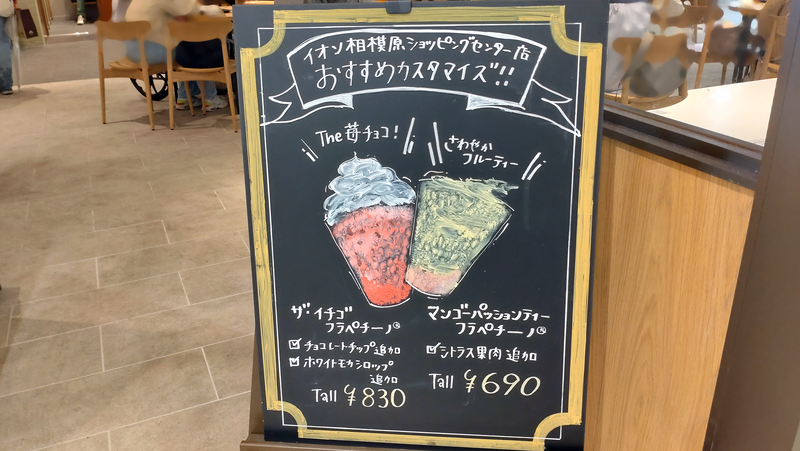 イオン相模原ショッピングセンター店
おすすめカスタマイズ!!
The 苺チョコ!
さわやか
フルーティー
ザ・イチゴ
フラペチーノ®
☑チョコレートチップ追加
☑ホワイトモカシロップ
追加
Tall ¥830
マンゴーパッションティー
フラペチーノ®
☑シトラス果肉 追加
Tall ¥690